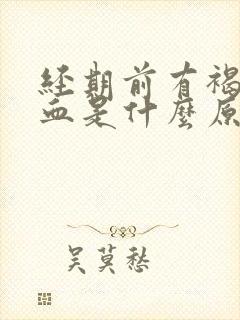 经期前有褐
血是什麼原
吴莫愁